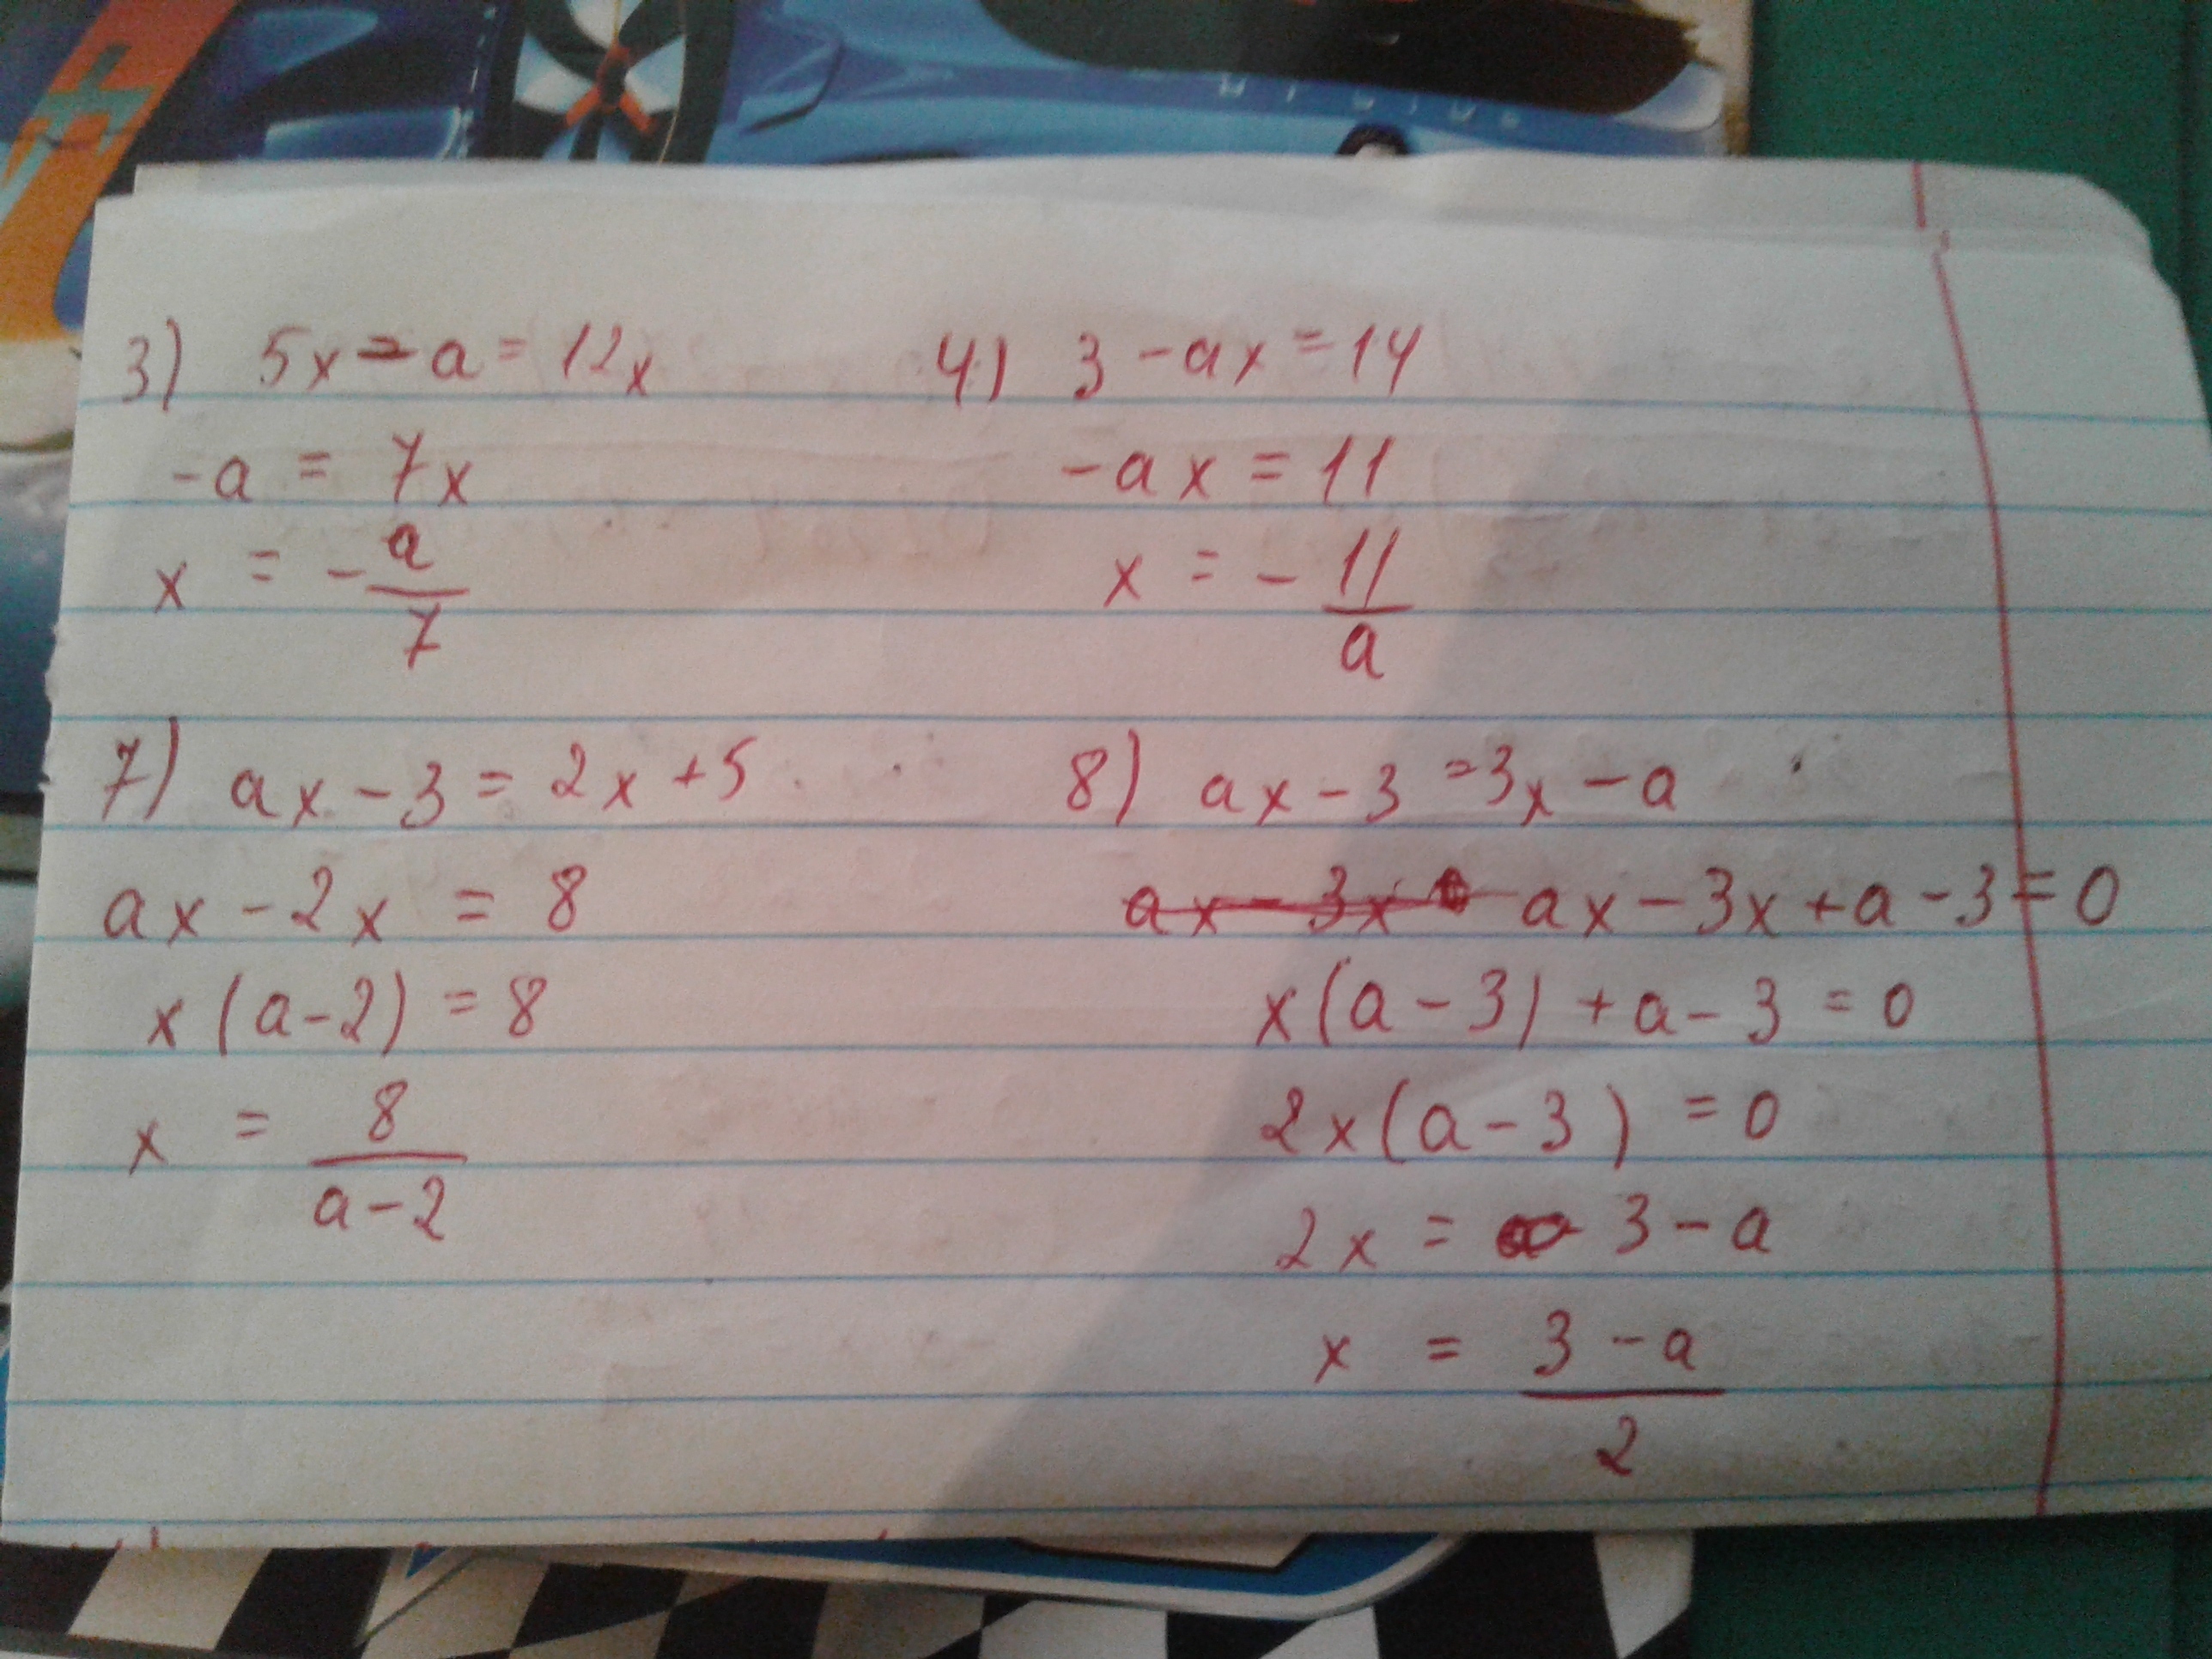 3) 5x - a = 12x
-a = 7x
x = - a/7
4) 3 - ax = 14
-ax = 11
x = - 11/a
7) ax - 3 = 2x + 5
ax - 2x = 8
x (a - 2) = 8
x = 8/(a - 2)
8) ax - 3 = 3x - a
ax - 3x + a - 3 = 0
x (a - 3) + a - 3 = 0
2x (a - 3) = 0
2x = 3 - a
x = (3 - a)/2